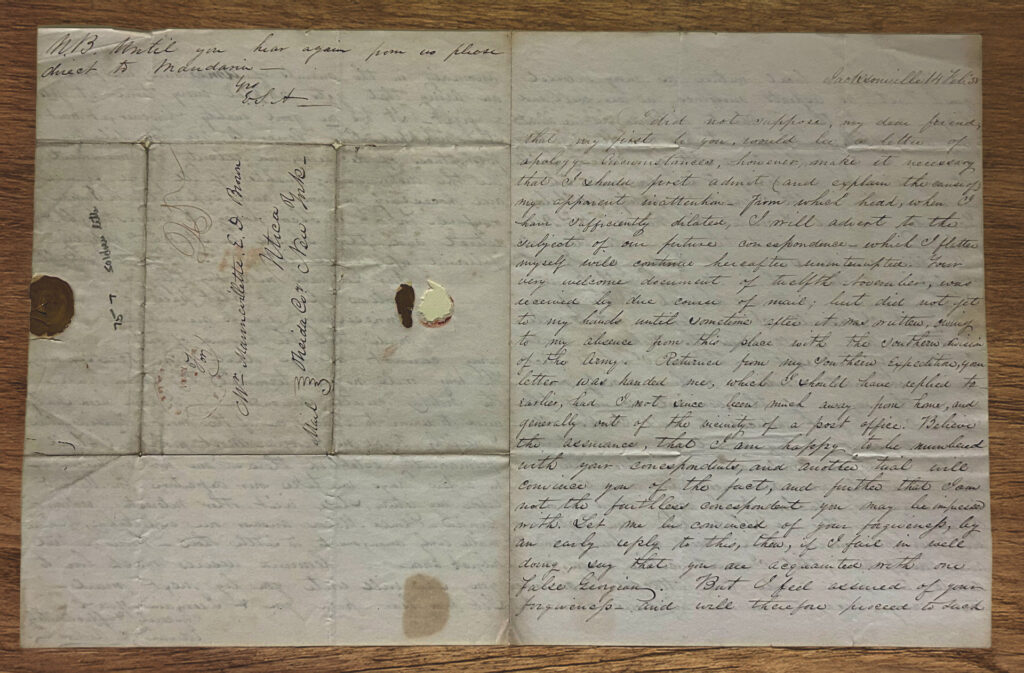 N.B. Until you hear again from us please
direct to Mandarin —
E.S.A —
soldiers
75
Mail
E. D. Brown
Utica
Oneida Co. New York
Jacksonville 14 Feb. 38
I did not suppose, my dear friend,
that my first to you, would be a letter of
apology. Circumstances, however, make it necessary
that I should first admit (and explain the cause of)
my apparent inattention — from which head, when I
have sufficiently dilated, I will advert to the
subject of our future correspondence — which I flatter
myself will continue hereafter uninterrupted. Your
very welcome document of twelfth November, was
received by due course of mail; but did not get
to my hands until sometime after it was written, owing
to my absence from this place with the southern division
of the Army. Returned from my southern expedition, your
letter was handed me, which I should have replied to
earlier, had I not since been much away from home, and
generally out of the vicinity of a post office. Believe
the assurance, that I am happy to be numbered
with your correspondents, and another trial will
convince you of the fact, and further that I am
not the faithless correspondent you may be impressed
with. Let me be convinced of your forgiveness, by
an early reply to this, then, if I fail in well
doing, say that you are acquainted with one
false Georgian. But I feel assured of your
forgiveness — and will therefore proceed to such